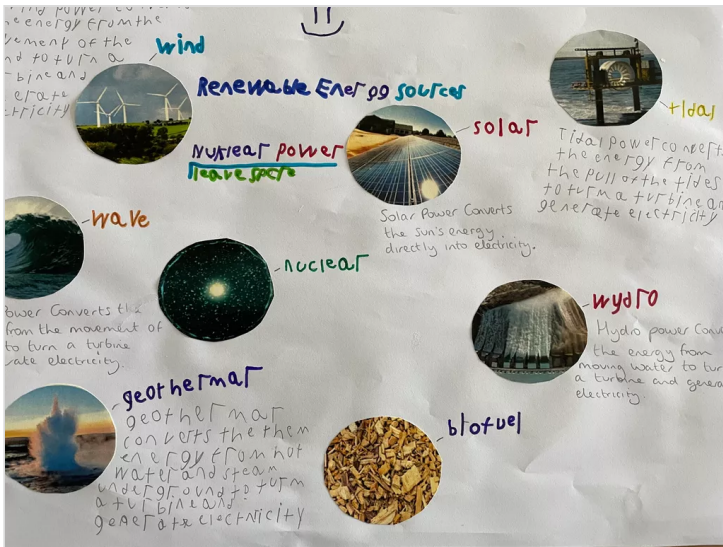 power converts
energy from the
vement of the
nd to turn a
bine and
erate
ctricity
wind
Renewable Energy sources
Nuklear power
leave spere
solar
Solar Power Converts
the sun's energy
directly into electricity.
tidal
Tidal Power convert
the energy from
the pull of the tides
to turn a turbine an
generate electricity
wave
ower Converts the
from the movement of
to turn a turbine
rate electricity.
nuclear
wydro
Hydro power Conv
the energy from
moving water to tur
a turbine and genera
electricity.
geothermar
geothermar
converts the them
energy from hot
water and steam
underground to turn
a turbine and
generate electricity
biofuel